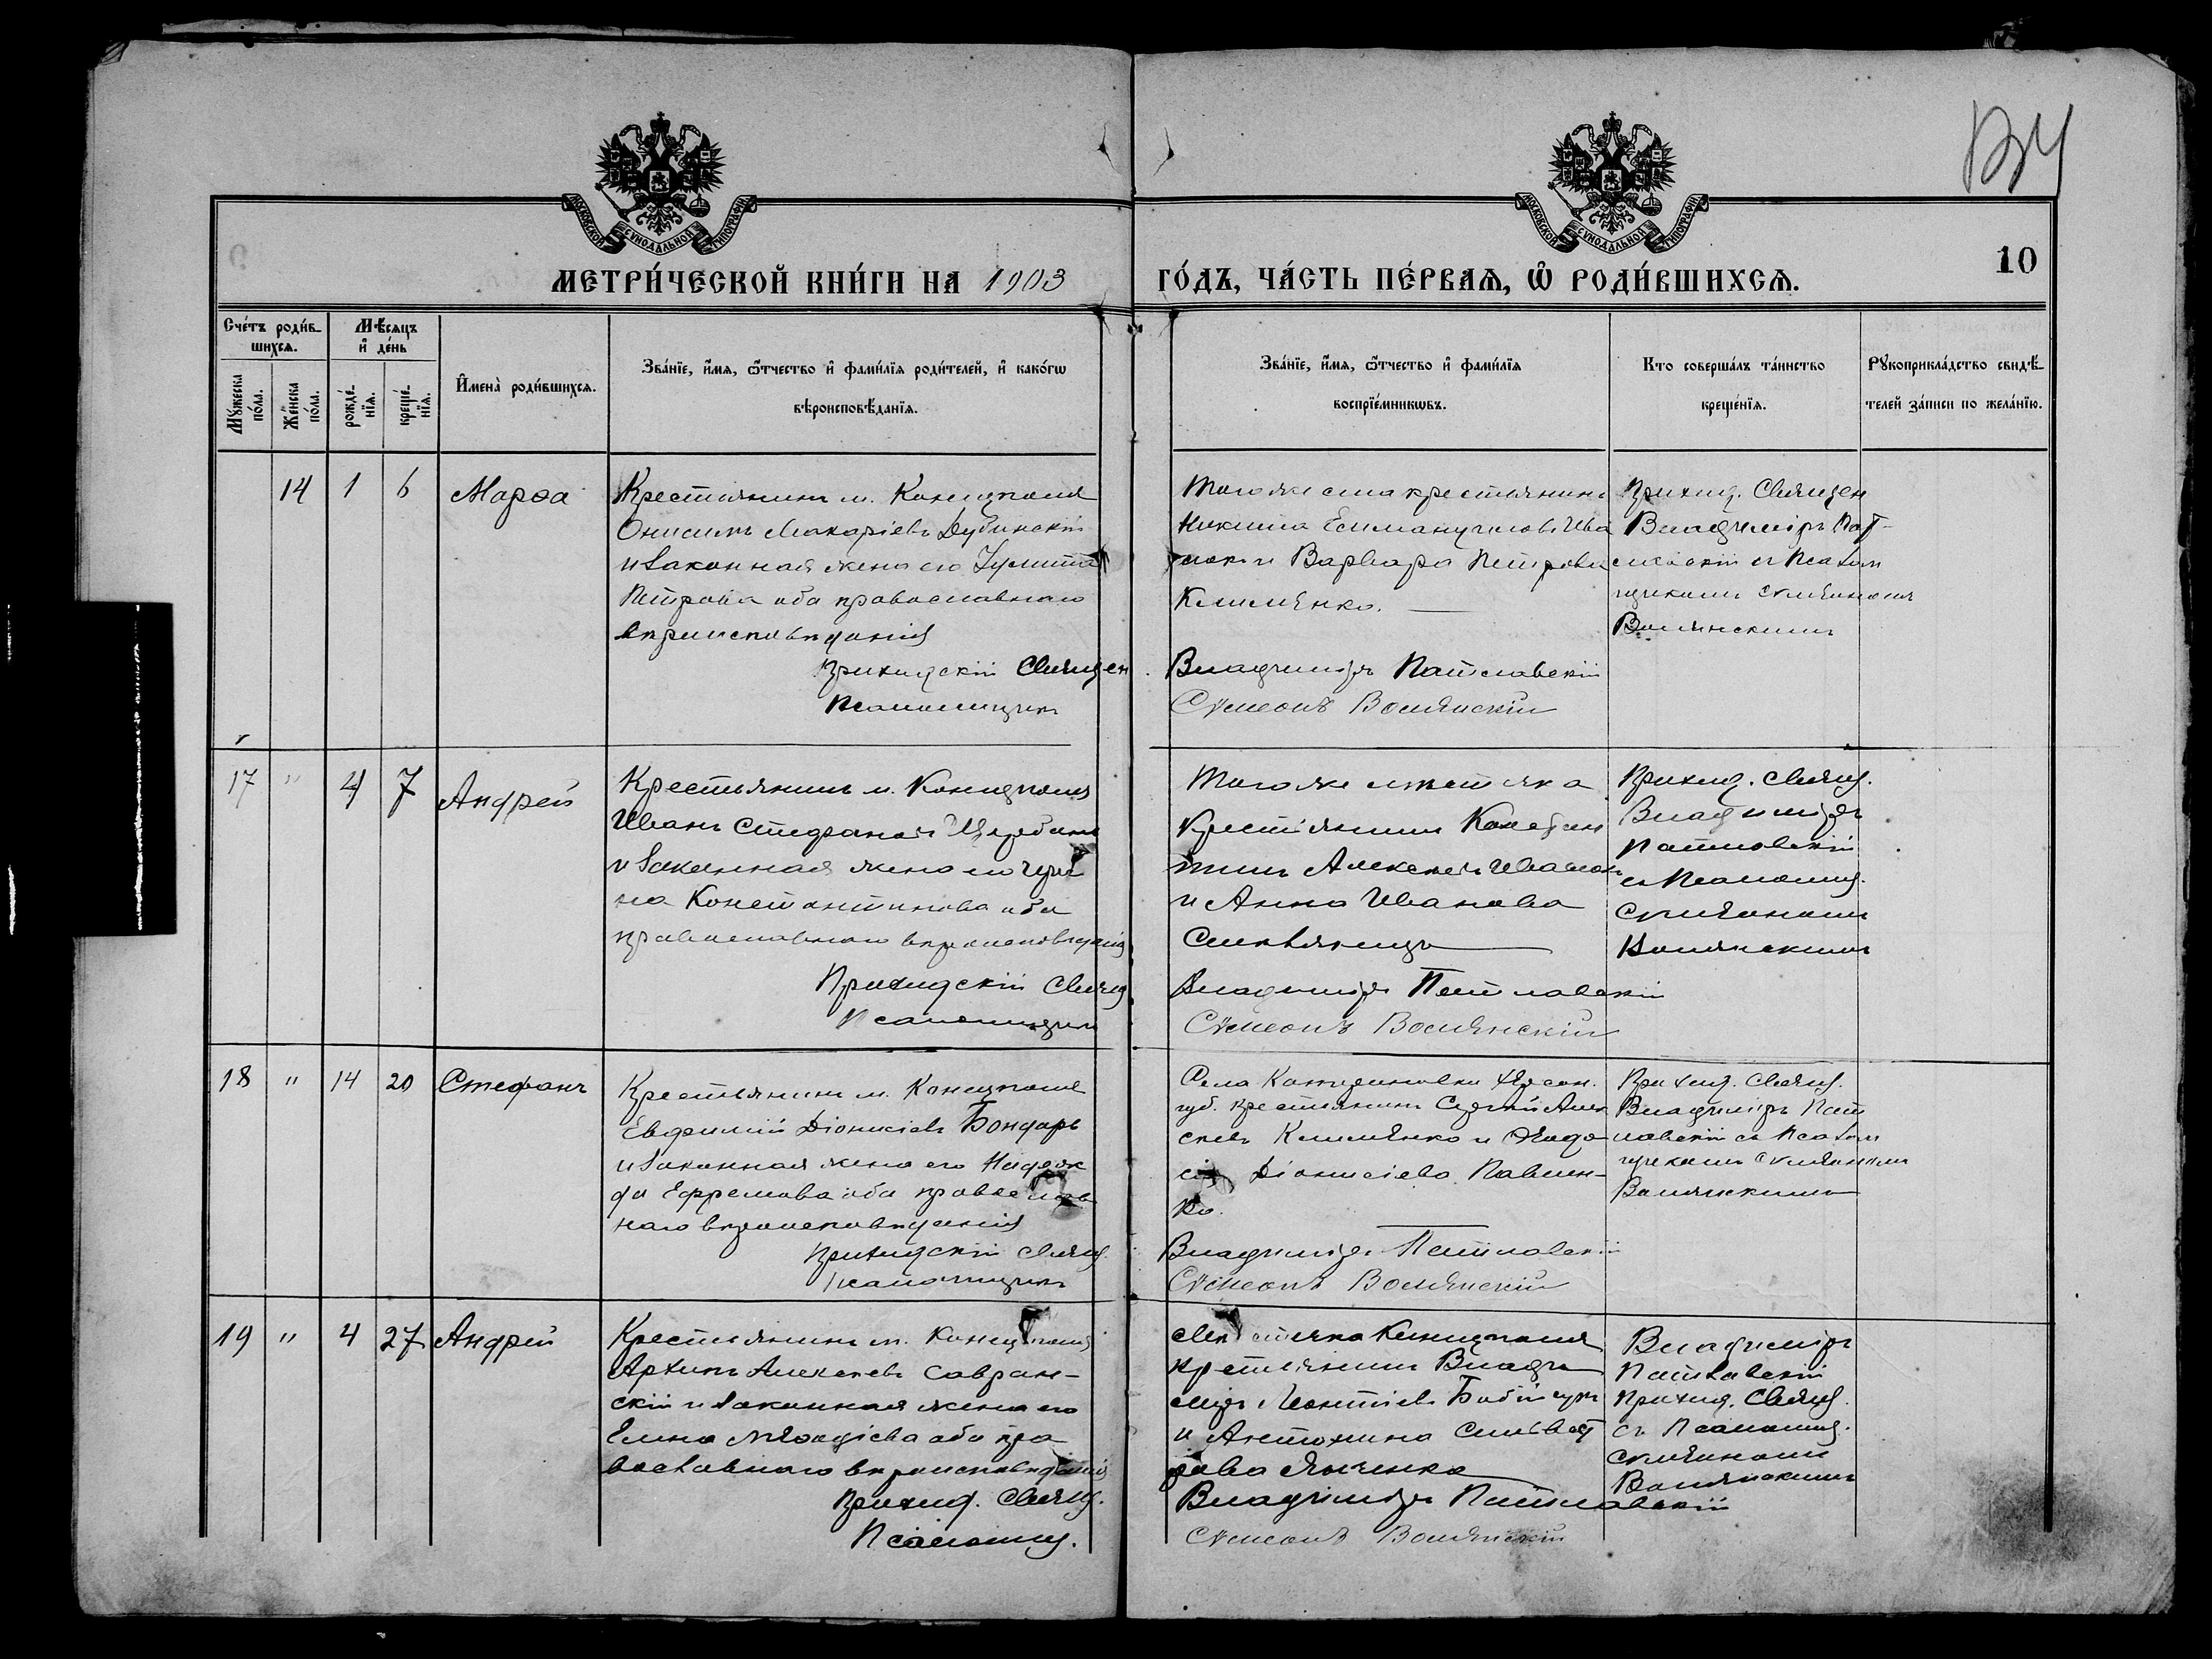 МОСКОВСКОЙ СѴНОДАЛЬНОЙ ТИПОГРАФІИ
МОСКОВСКОЙ СѴНОДАЛЬНОЙ ТИПОГРАФІИ
10
МЕТРИ́ЧЕСКОЙ КНИ́ГИ НА 1903 ГО́ДЪ, ЧА́СТЬ ПЕ́РВАѦ, Ѡ҆ РОДИ́ВШИХСѦ.
Сче́тъ роди́в-
шихсѧ.
Мꙋ́жеска по́ла.
Же́нска по́ла.
Мѣ́сяцъ
и҆ де́нь
рожде́-
нїѧ.
креще́-
нїѧ.
И҆мена̀ роди́вшихсѧ.
Зва́нїе, и҆́мѧ, ѻ҆́тчество и҆ фами́лїѧ роди́телей, и҆ како́гѡ
вѣроисповѣ́данїѧ.
Зва́нїе, и҆́мѧ, ѻ҆́тчество и҆ фами́лїѧ
воспрїе́мникѡвъ.
Кто соверша́лъ та́инство
креще́нїѧ.
Рꙋкоприкла́дство свидѣ́-
телей за́писи по жела́нїю.
14 1 6 Марѳа
Крестьянинъ м. Конецполя
Онисимъ Макаріевъ Дубинскій
и законная жена его Іулитта
Петрова оба православнаго
вѣроисповѣданія
Приходскій Священ.
Псаломщикъ
крестьянинъ
Никита
и Варвара Петрова
Клименко.
Владиміръ Патлавскій
Сѵмеонъ Волянскій
Приход. Священ
Владиміръ Пат-
лавскій съ Псалом
щикомъ Сѵмеономъ
Волянскимъ
17 " 4 7 Андрей
Крестьянинъ м. Конецполя
Иванъ Стефановъ
и законная жена его Ири
на Константинова оба
православнаго вѣроисповѣданія
Приходскій Священ
Псаломщикъ
Того же мѣстечка
Крестьянинъ Констан
тинъ Алексѣевъ
и Анна Иванова
Владиміръ Патлавскій
Сѵмеонъ Волянскій
Приход. Свящ.
Владиміръ
Патлавскій
съ Псаломщ.
Сѵмеономъ
Волянскимъ
18 " 14 20 Стефанъ
Крестьянинъ м. Конецполя
Евфимій Діонисіевъ Бондарь
и законная жена его Надеж
да Ефремова оба православ
наго вѣроисповѣданія
Приходскій Свящ.
Псаломщикъ
Села Катериновки Херсон.
губ. крестьянинъ Сергѣй Алек
сѣевъ Клименко и Ѳеодо
сія Діонисіева Павлен-
ко.
Владиміръ Патлавскій
Сѵмеонъ Волянскій
Приход. Свящ.
Владиміръ Пат
лавскій съ Псалом
щикомъ Сѵмеономъ
Волянскимъ
19 " 4 27 Андрей
Крестьянинъ м. Конецполя
Архипъ Алексѣевъ Савран-
скій и законная жена его
Елена оба пра
вославнаго вѣроисповѣданія
Приход. Свящ.
Псаломщ.
Мѣстечка Конецполя
крестьянинъ Влади
міръ Леонтіевъ
и Антонина Сильвест
рова
Владиміръ Патлавскій
Сѵмеонъ Волянскій
Владиміръ
Патлавскій
Приход. Свящ.
съ Псаломщ.
Сѵмеономъ
Волянскимъ